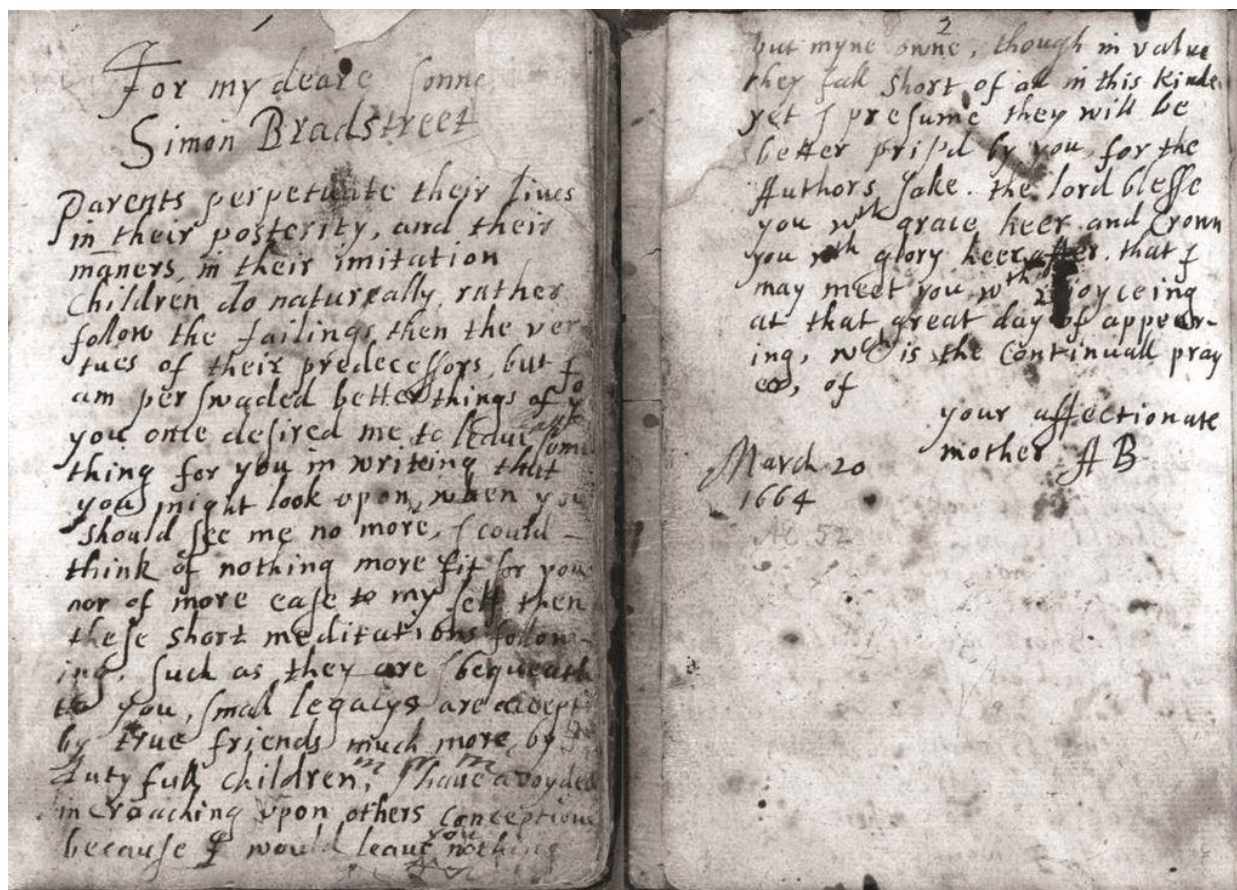 For my deare Sonne
Simon Bradstreet
Parents perpetuate their lives
in their posterity, and their
maners, in their imitation
Children do natureally, rather
follow the failings, then the ver
tues of their predecessors, but I
am perswaded better things of yo
you once desired me to leave some
thing for you in writeing that
you might look upon, when you
should see me no more, I could
think of nothing more fit for you
nor of more ease to my self then
these short meditations follow-
ing. Such as they are I bequeath
to you, small legacys are accept
by true friends much more by
dutyfull children, I have avoyded
incroaching upon others conceptions
because I would leave you nothing
2
but myne owne, though in value
they fall short of all in this kinde
yet I presume they will be
better pris'd by you, for the
Authors sake. the lord blesse
you wth grace heer and crown
you wth glory heerafter. that I
may meet you wth rejoyceing
at that great day of appear-
ing, wch is the continuall pray
er, of
your affectionate
mother A B
March 20
1664
AE. 52